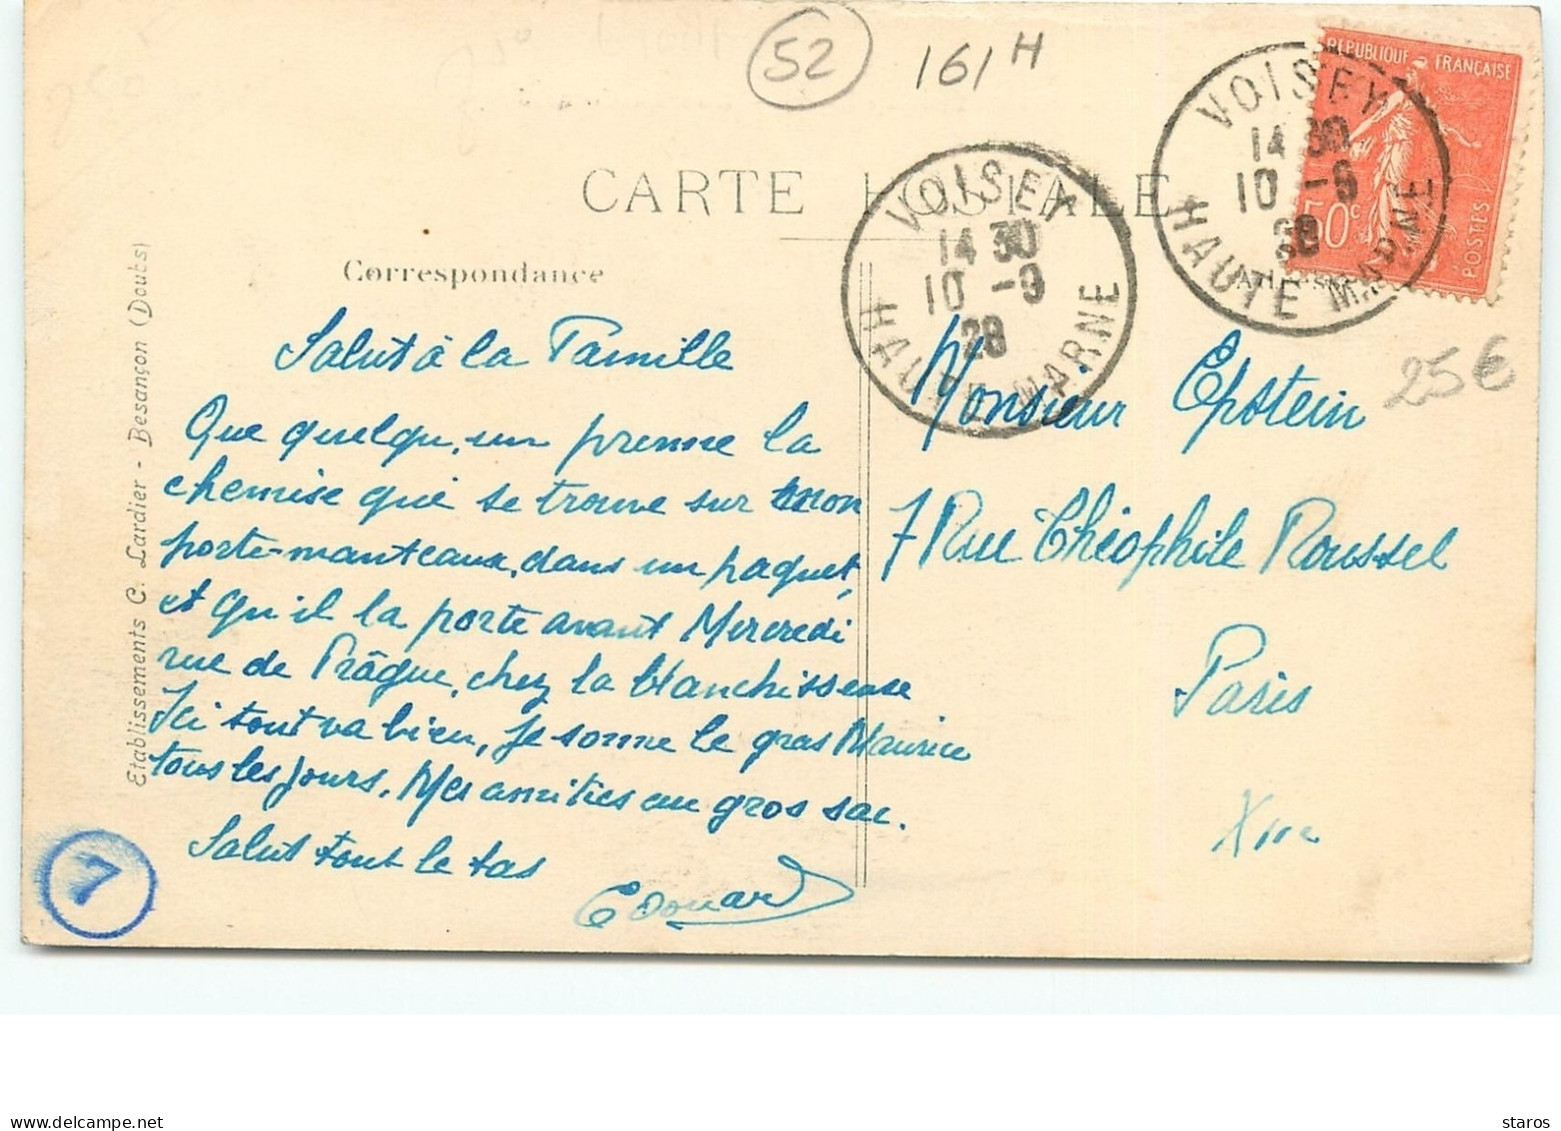 52
161H
CARTE POSTALE
Correspondance
VOISEY
14 30
10 -9
28
HAUTE MARNE
VOISEY
14 30
10 -9
28
HAUTE MARNE
REPUBLIQUE FRANÇAISE
50c
POSTES
25€
Salut à la Famille
Que quelqu,un prenne la
chemise qui se trouve sur mon
porte-manteaux, dans un paquet,
et qu'il la porte avant Mercredi
rue de Prâgue, chez la blanchisseuse
Ici tout va bien, je sonne le gras Maurice
tous les jours. Mes amitiés au gros sac.
Salut tout le tas
Edouard
Monsieur Epstein
7 Rue Théophile Roussel
Paris
XIIe
Etablissements C. Lardier - Besançon (Doubs)
7
delcampe.net
staros